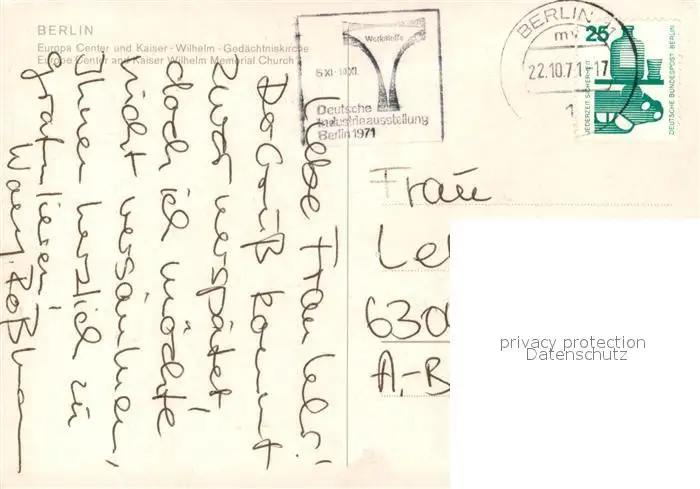 BERLIN
Europa Center und Kaiser-Wilhelm-Gedächtniskirche
Europe Center and Kaiser Wilhelm Memorial Church
Werkstoffe
5.XI.-14.XI.
Deutsche
Industrieausstellung
Berlin 1971
BERLIN 11
mv
22.10.71-17
1
25
JEDERZEIT SICHERHEIT
DEUTSCHE BUNDESPOST BERLIN
Liebe Frau
Der Gruß kommt
zwar verspätet
doch ich möchte
nicht versäumen
Ihnen herzlich zu
gratulieren!
Frau
630
A.-B
privacy protection
Datenschutz